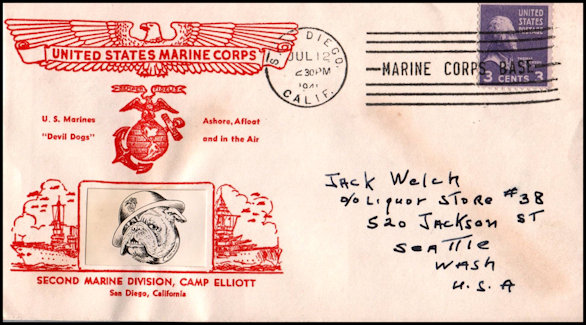 UNITED STATES MARINE CORPS
SEMPER FIDELIS
U. S. Marines
"Devil Dogs"
Ashore, Afloat
and in the Air
SECOND MARINE DIVISION, CAMP ELLIOTT
San Diego, California
DIEGO,
JUL 12
30PM
194
CALIF.
MARINE CORPS BASE
UNITED
STATES
POSTAGE
3 CENTS 3
Jack Welch
c/o Liquor Store #38
520 Jackson ST
Seattle
Wash
U.S.A